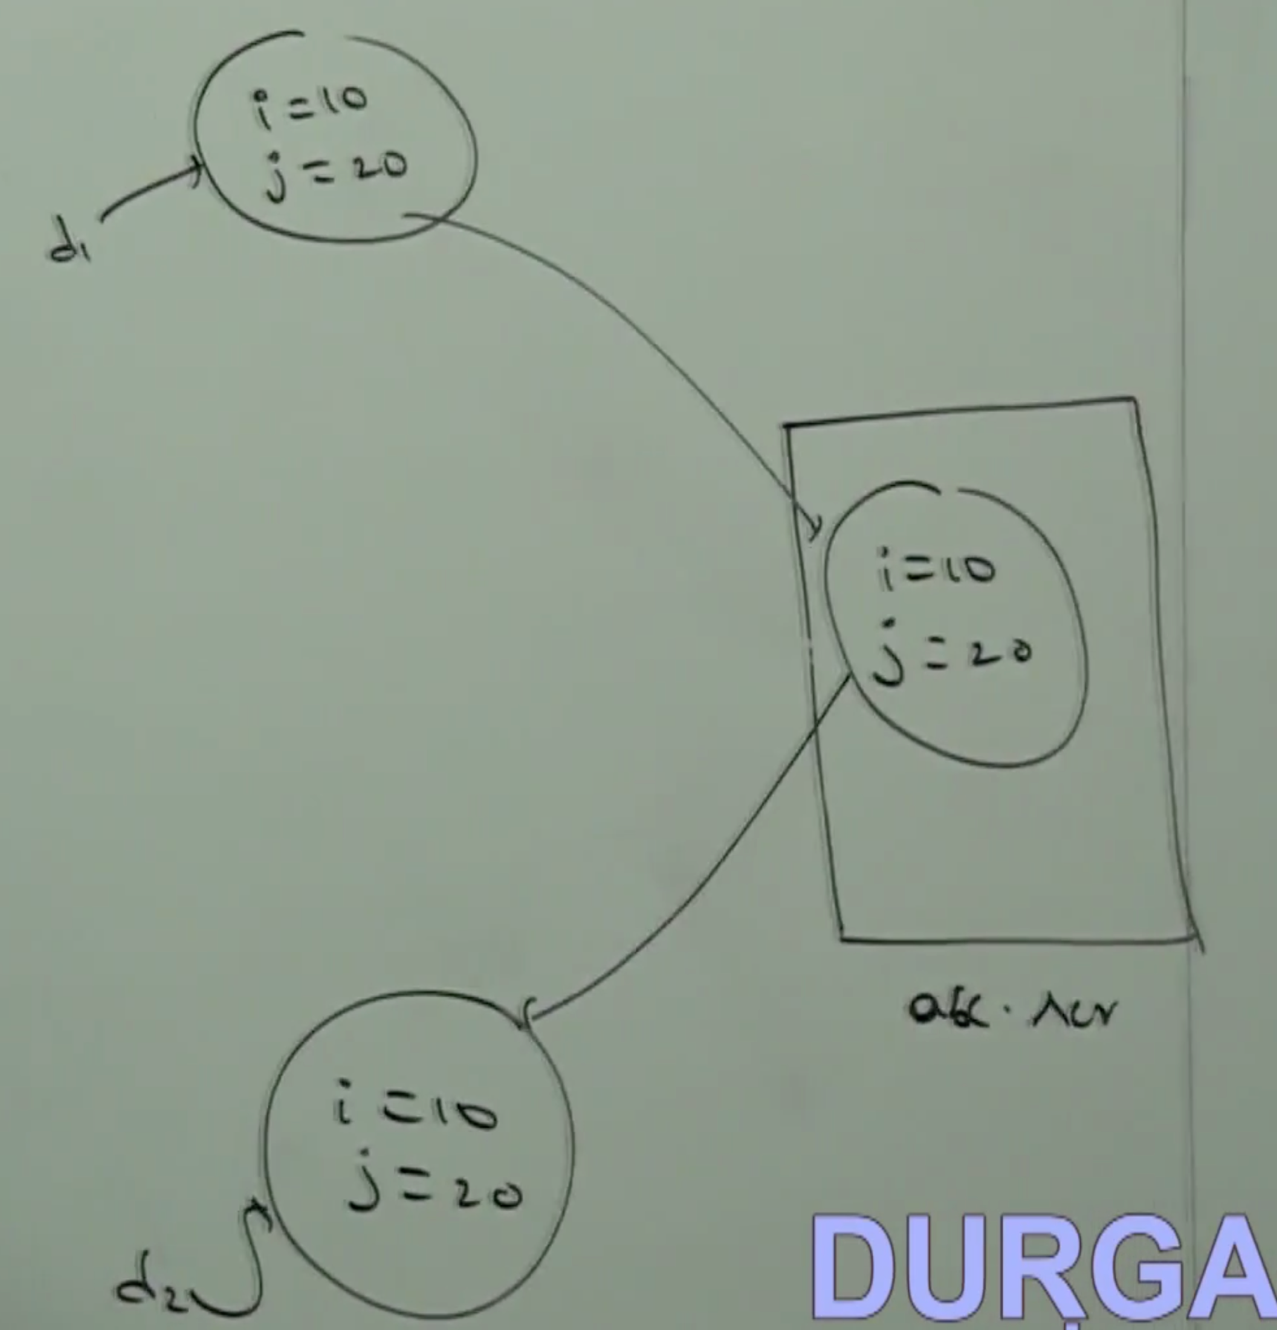 i=10
j=20
d1
i=10
j=20
abc.ser
i=10
j=20
d2
DURGA